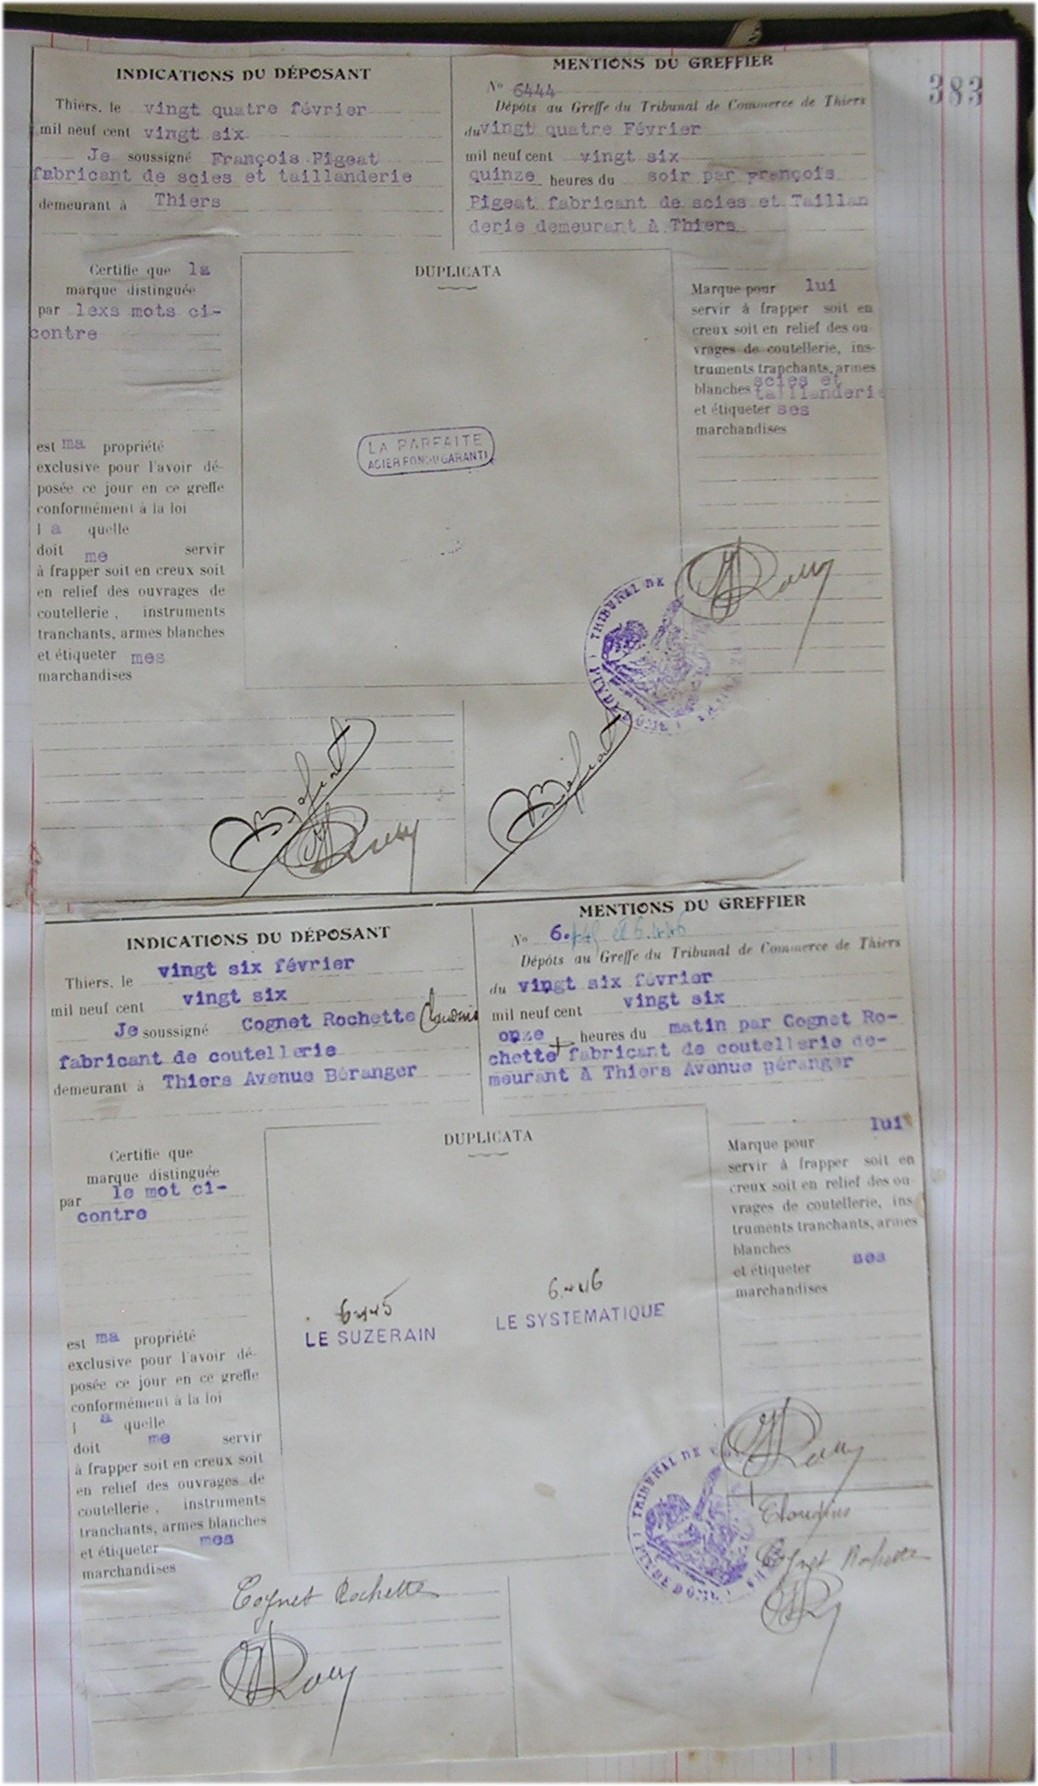 383
INDICATIONS DU DÉPOSANT
Thiers, le vingt quatre février
mil neuf cent vingt six
Je soussigné François Pigeat
fabricant de scies et taillanderie
demeurant à Thiers
MENTIONS DU GREFFIER
N° 6444
Dépôts au Greffe du Tribunal de Commerce de Thiers
du vingt quatre Février
mil neuf cent vingt six
quinze heures du soir par François
Pigeat fabricant de scies et Taillan
derie demeurant à Thiers
Certifie que la
marque distinguée
par lexs mots ci-
contre
est ma propriété
exclusive pour l'avoir dé-
posée ce jour en ce greffe
conformément à la loi
l a quelle
doit me servir
à frapper soit en creux soit
en relief des ouvrages de
coutellerie, instruments
tranchants, armes blanches
et étiqueter mes
marchandises
DUPLICATA
LA PARFAITE
ACIER FONDU GARANTI
Marque pour lui
servir à frapper soit en
creux soit en relief des ou-
vrages de coutellerie, ins-
truments tranchants, armes
blanches scies et
taillanderie
et étiqueter ses
marchandises
TRIBUNAL DE
PUY DE DÔME
INDICATIONS DU DÉPOSANT
Thiers, le vingt six février
mil neuf cent vingt six
Je soussigné Cognet Rochette Claudius
fabricant de coutellerie
demeurant à Thiers Avenue Béranger
MENTIONS DU GREFFIER
N° 6.445 et 6.446
Dépôts au Greffe du Tribunal de Commerce de Thiers
du vingt six février
mil neuf cent vingt six
onze heures du matin par Cognet Ro-
chette + fabricant de coutellerie de-
meurant à Thiers Avenue Béranger
Certifie que
marque distinguée
par le mot ci-
contre
est ma propriété
exclusive pour l'avoir dé-
posée ce jour en ce greffe
conformément à la loi
l a quelle
doit me servir
à frapper soit en creux soit
en relief des ouvrages de
coutellerie, instruments
tranchants, armes blanches
et étiqueter mes
marchandises
DUPLICATA
6445
LE SUZERAIN
6446
LE SYSTEMATIQUE
Marque pour lui
servir à frapper soit en
creux soit en relief des ou-
vrages de coutellerie, ins-
truments tranchants, armes
blanches
et étiqueter ses
marchandises
TRIBUNAL DE
PUY DE DÔME
+ Claudius
Cognet Rochette
Cognet Rochette